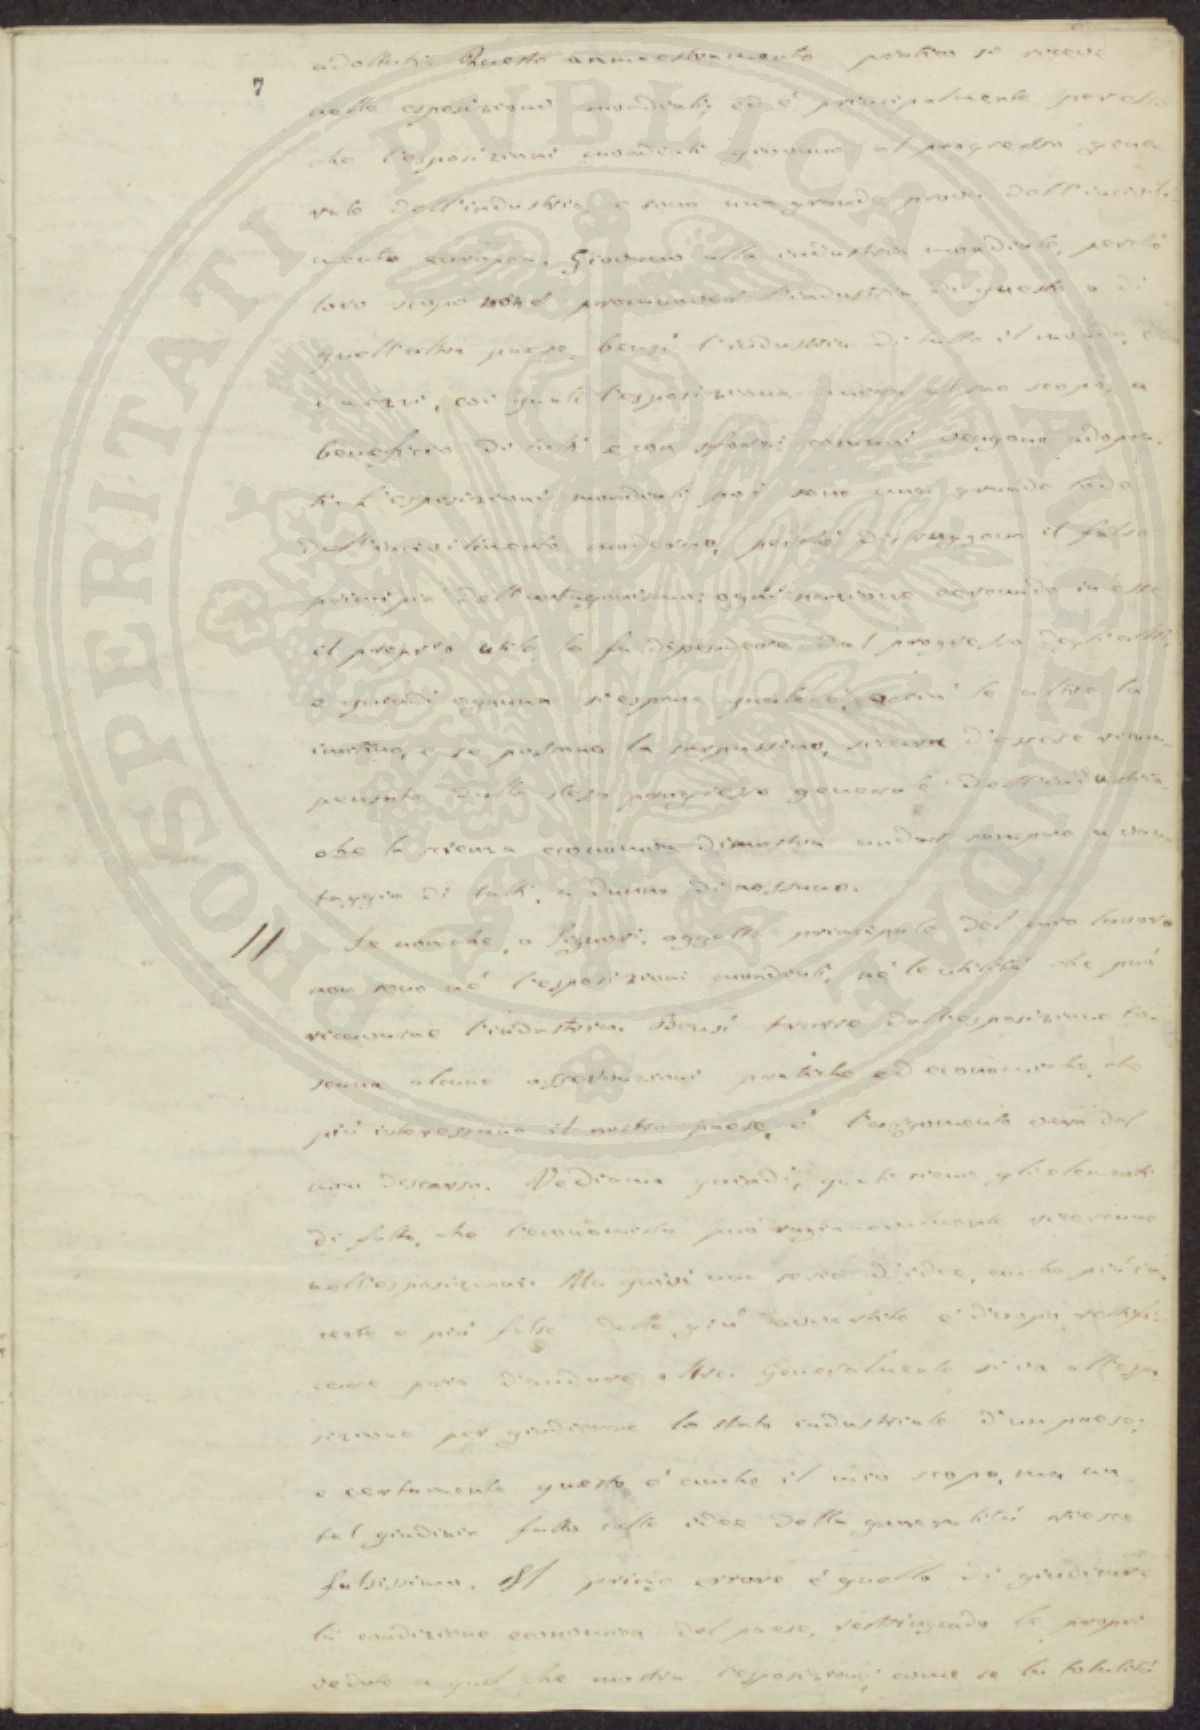 7
adottati. Questo ammaestramento pratico si riceve
nelle esposizioni mondiali; ed è principalmente per esso
che l'esposizioni mondiali giovano al progresso gene-
rale dell'industria, e sono una grande prova dell'incivili-
mento europeo. Giovano alla industria mondiale, perchè
loro scopo non è promuover l'industria di questo o di
quell'altro paese, bensì l'industria di tutto il mondo, e
i mezzi, coi quali l'esposizione mira al suo scopo, a
beneficio di tutti e con sforzi comuni vengono adopra-
ti. L'esposizioni mondiali poi sono una grande lode
dell'incivilimento moderno, perchè distruggono il falso
principio dell'antagonismo; ogni nazione cercando in esse
il proprio utile, lo fa dipendere dal progresso degli altri,
e quindi ognuna s'espone quale è, acciò le altre la
imitino, e se possono la sorpassino, sicura d'essere ricom-
pensata dallo stesso progresso generale dell'industria
che la scienza economica dimostra andar sempre a van-
taggio di tutti, a danno di nessuno.
Se non che, o Signori, oggetto principale del mio lavoro
non sono nè l'esposizioni mondiali, nè le utilità che può
ricavarne l'industria. Bensì trarre dall'esposizione to-
scana alcune osservazioni pratiche ed economiche, che
più interessano il nostro paese, è l'argomento vero del
mio discorso. Vediamo quindi, quali siano gli elementi
di fatto, che l'economista può ragionevolmente ricavare
nell'esposizioni. Ma quivi una serie d'idee, anche più in-
certe e più false delle già avvertite è d'uopo rettifi-
care pria d'andare oltre. Generalmente si va all'espo-
sizione per giudicare lo stato industriale d'un paese;
e certamente questo è anche il mio scopo, ma un
tal giudizio fatto colle idee della generalità riesce
falsissimo. Il primo errore è quello di giudicare
la condizione economica del paese, restringendo le proprie
vedute a quel che mostra l'esposizione; come se la totalità